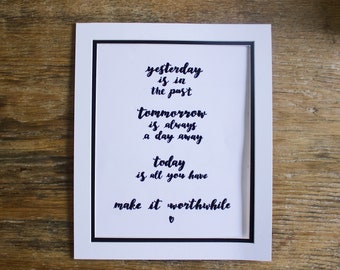 yesterday
is in
the past
tommorrow
is always
a day away
today
is all you have
make it worthwhile